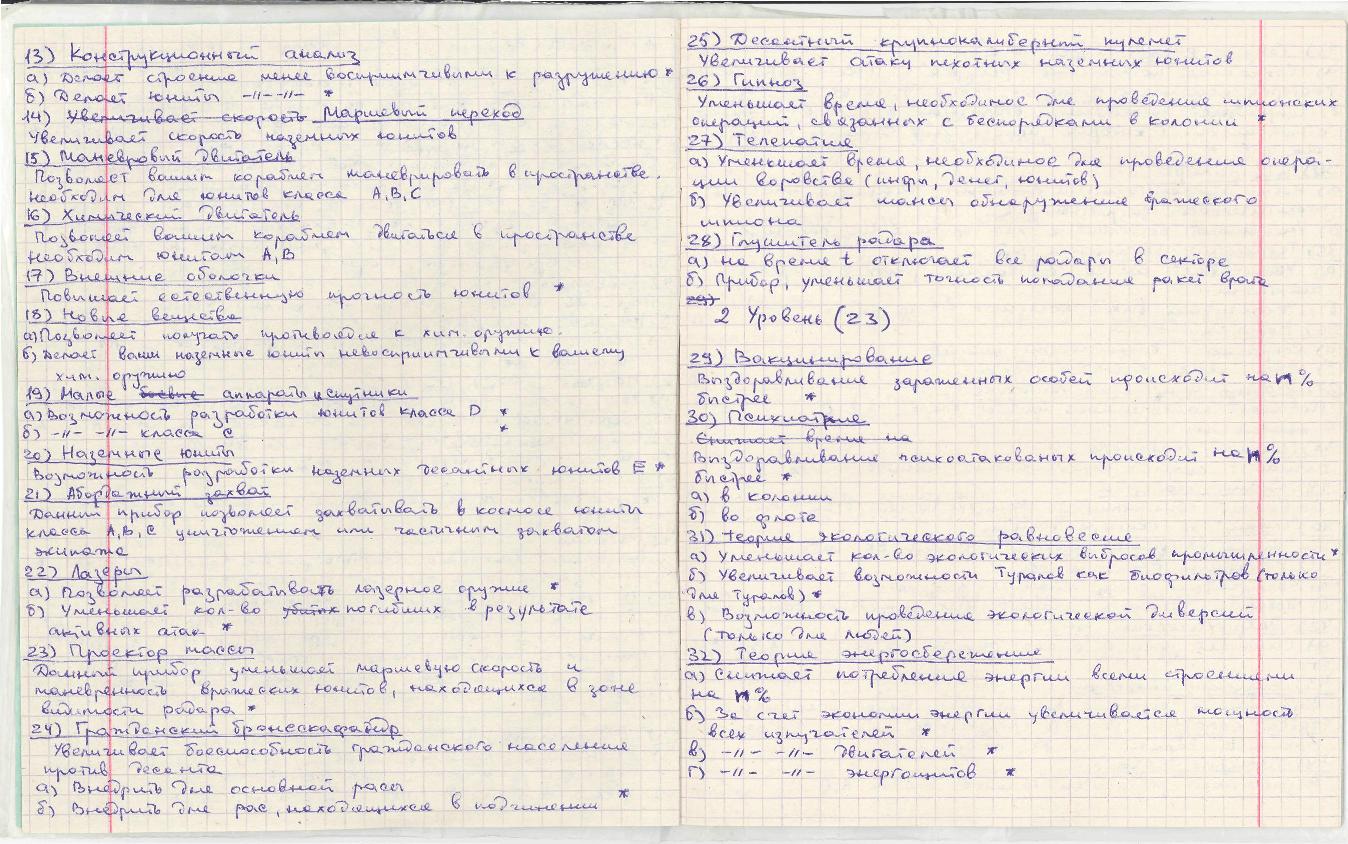 13) Конструкционный анализ
а) Делает строение менее восприимчивыми к разрушению *
б) Делает юниты -//- -//- *
14) Увеличивает скорость Маршевый переход
Увеличивает скорость наземных юнитов
15) Маневровый двигатель
Позволяет вашим кораблям маневрировать в пространстве.
Необходим для юнитов класса А,В,С
16) Химический двигатель
Позволяет вашим кораблям двигаться в пространстве
Необходим юнитам А,В
17) Внешние оболочки
Повышает естественную прочность юнитов *
18) Новые вещества
а) Позволяет получать противоядия к хим. оружию.
б) Делает ваши наземные юниты невосприимчивыми к вашему
хим. оружию
19) Малые боевые аппараты и спутники
а) Возможность разработки юнитов класса D *
б) -//- -//- класса С *
20) Наземные юниты
Возможность разработки наземных десантных юнитов Е *
21) Абордажный захват
Данный прибор позволяет захватывать в космосе юниты
класса А,В,С уничтожением или частичным захватом
экипажа
22) Лазеры
а) Позволяет разрабатывать лазерное оружие *
б) Уменьшает кол-во убитых погибших в результате
активных атак *
23) Проектор массы
Данный прибор уменьшает маршевую скорость и
маневренность вражеских юнитов, находящихся в зоне
видимости радара *
24) Гражданский бронескафандр
Увеличивает боеспособность гражданского населения
против десанта
а) Внедрить для основной расы
б) Внедрить для рас, находящихся в подчинении *
25) Десантный крупнокалиберный пулемет
Увеличивает атаку пехотных наземных юнитов
26) Гипноз
Уменьшает время, необходимое для проведения шпионских
операций, связанных с беспорядками в колонии *
27) Телепатия
а) Уменьшает время, необходимое для проведения опера-
ции воровства (инфы, денег, юнитов)
б) Увеличивает шансы обнаружения вражеского
шпиона
28) Глушитель радара
а) на время t отключает все радары в секторе
б) Прибор, уменьшает точность попадания ракет врага
29)
2 Уровень (23)
29) Вакцинирование
Выздоравливание зараженных особей происходит на n %
быстрее *
30) Психиатрия
Снижает время на
Выздоравливание психоатакованых происходит на n %
быстрее *
а) в колонии
б) во флоте
31) Теория экологического равновесия
а) Уменьшает кол-во экологических выбросов промышленности *
б) Увеличивает возможности Туралов как биофильтров (только
для Туралов) *
в) Возможность проведения экологической диверсии
(только для людей)
32) Теория энергосбережения
а) Снижает потребление энергии всеми строениями
на n %
б) За счет экономии энергии увеличивается мощность
всех излучателей *
в) -//- -//- двигателей *
г) -//- -//- энергощитов *